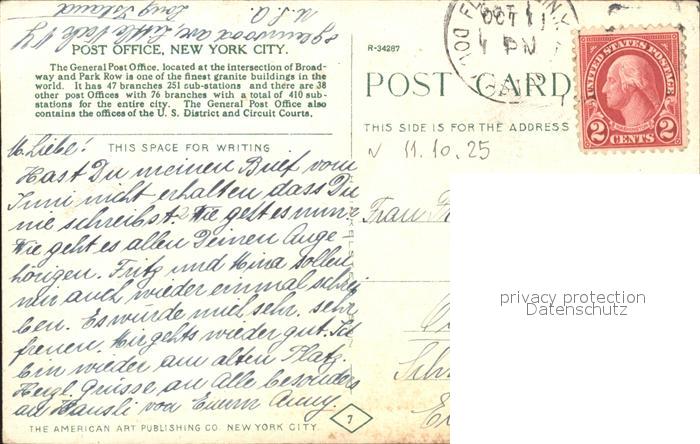 U.S.A. Long Island
POST OFFICE, NEW YORK CITY.
The General Post Office, located at the intersection of Broad-
way and Park Row is one of the finest granite buildings in the
world. It has 47 branches 251 sub-stations and there are 38
other post Offices with 76 branches with a total of 410 sub-
stations for the entire city. The General Post Office also
contains the offices of the U. S. District and Circuit Courts.
THIS SPACE FOR WRITING
M. Liebe!
Hast Du meinen Brief vom
Juni nicht erhalten dass Du
nie schreibst. Wie geht es nun?
Wie geht es allen Deinen Ange
hörigen. Fritz und Mina sollen
mir auch wieder einmal schrei
ben. Es würde mich sehr, sehr
freuen. Mir gehts wieder gut. Ich
bin wieder am alten Platz.
Herzl. Grüsse an Alle besonders
an Hansli von Euerm Anny.
THE AMERICAN ART PUBLISHING CO. NEW YORK CITY.
7
R-34287
POST CARD
THIS SIDE IS FOR THE ADDRESS
OCT 11
4 PM
UNITED STATES POSTAGE
WASHINGTON
2 CENTS 2
11.10.25
Frau
privacy protection
Datenschutz